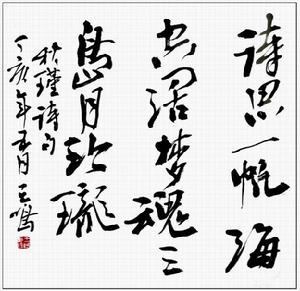 诗思一帆海
空阔梦魂三
岛月玲珑
秋瑾诗句
丁亥年月王